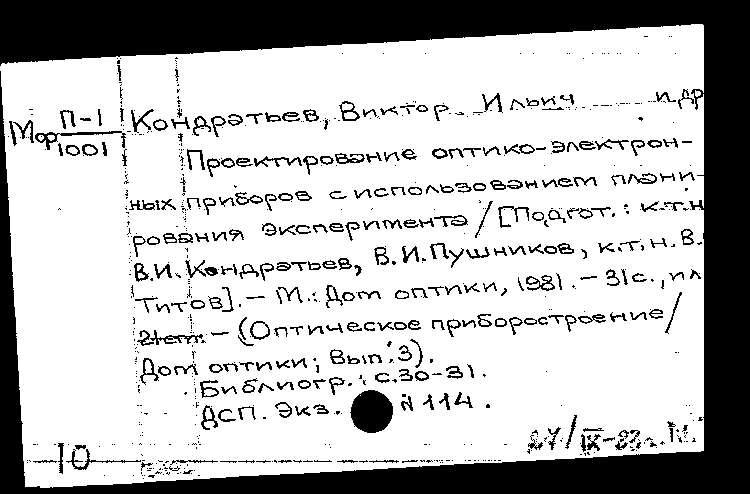 Мф П-1/1001 Кондратьев, Виктор Ильич и др
Проектирование оптико-электрон-
ных приборов с использованием плани-
рования эксперимента / [Подгот.: к.т.н
В.И. Кондратьев, В.И. Пушников, к.т.н. В.
Титов]. – М.: Дом оптики, 1981. – 31с., ил
– (Оптическое приборостроение /
Дом оптики; Вып. 3).
Библиогр.: с.30-31.
ДСП. Экз. № 114.
27/IX-83г.
10